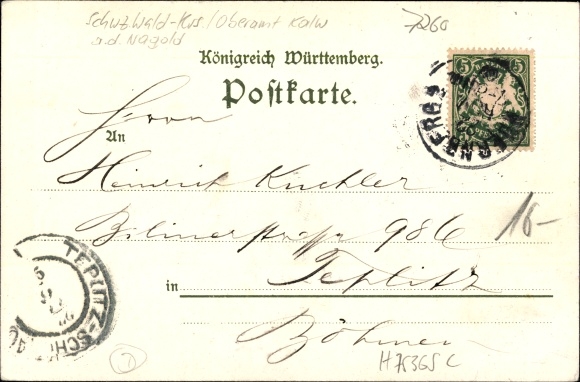 Schwzwald-Krs./Oberamt Kalw
a.d. Nagold
7260
Königreich Württemberg.
Postkarte.
5 BAYERN 5
NÜRNBERG
Herrn
An
Heinrich Kuchler
Bilinerstraße 986
16-
in Teplitz
Böhmen
TEPLITZ-SCH
H7536S C